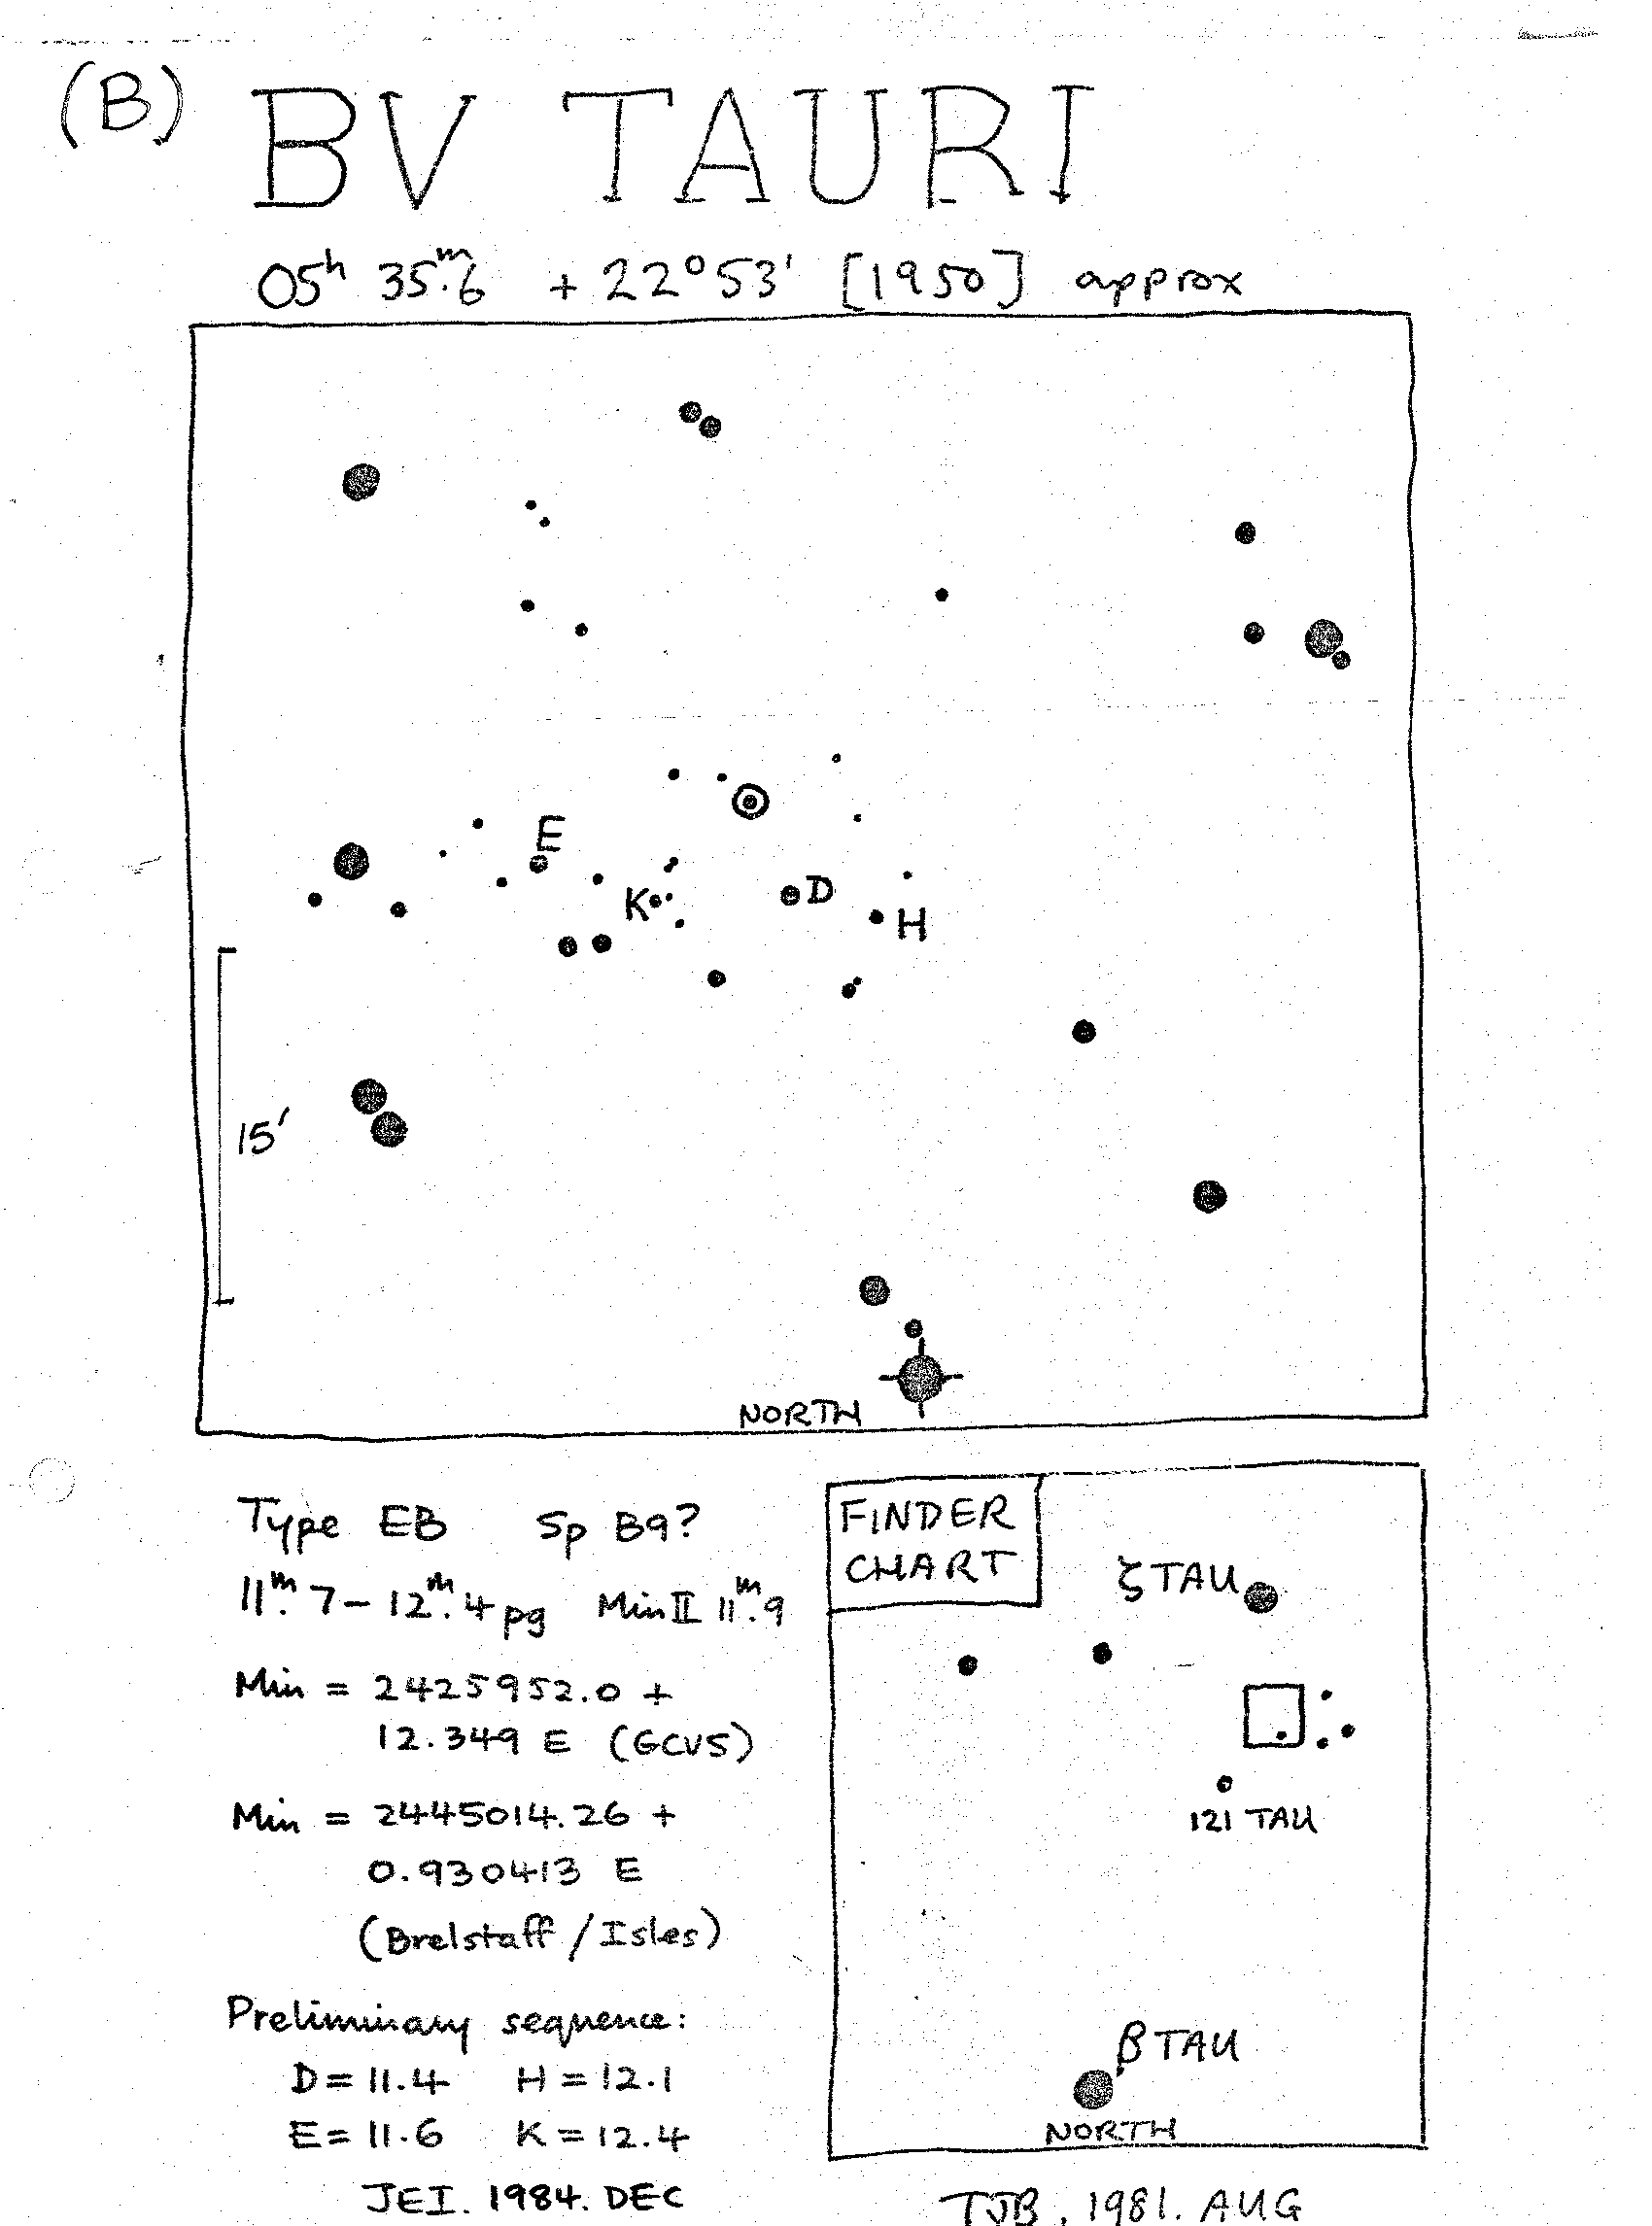 (B) BV TAURI
05ʰ 35ᵐ.6 + 22°53' [1950] approx
E
K
D
H
15'
NORTH
Type EB Sp B9?
11ᵐ.7 – 12ᵐ.4 pg Min II 11ᵐ.9
Min = 2425952.0 +
12.349 E (GCVS)
Min = 2445014.26 +
0.930413 E
(Brelstaff / Isles)
Preliminary sequence:
D = 11.4 H = 12.1
E = 11.6 K = 12.4
JEI. 1984. DEC
FINDER
CHART
ζ TAU
121 TAU
β TAU
NORTH
TJB, 1981. AUG